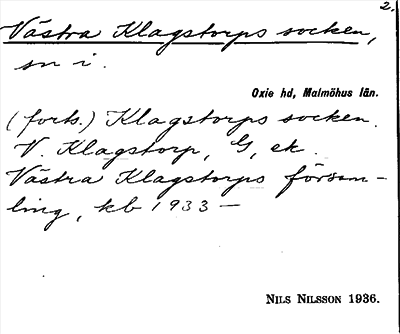 2.
Västra Klagstorps socken,
sn i.
Oxie hd, Malmöhus län.
(forts.) Klagstorps socken.
V. Klagstorp, G, ek.
Västra Klagstorps försam-
ling, kb 1933—
NILS NILSSON 1936.